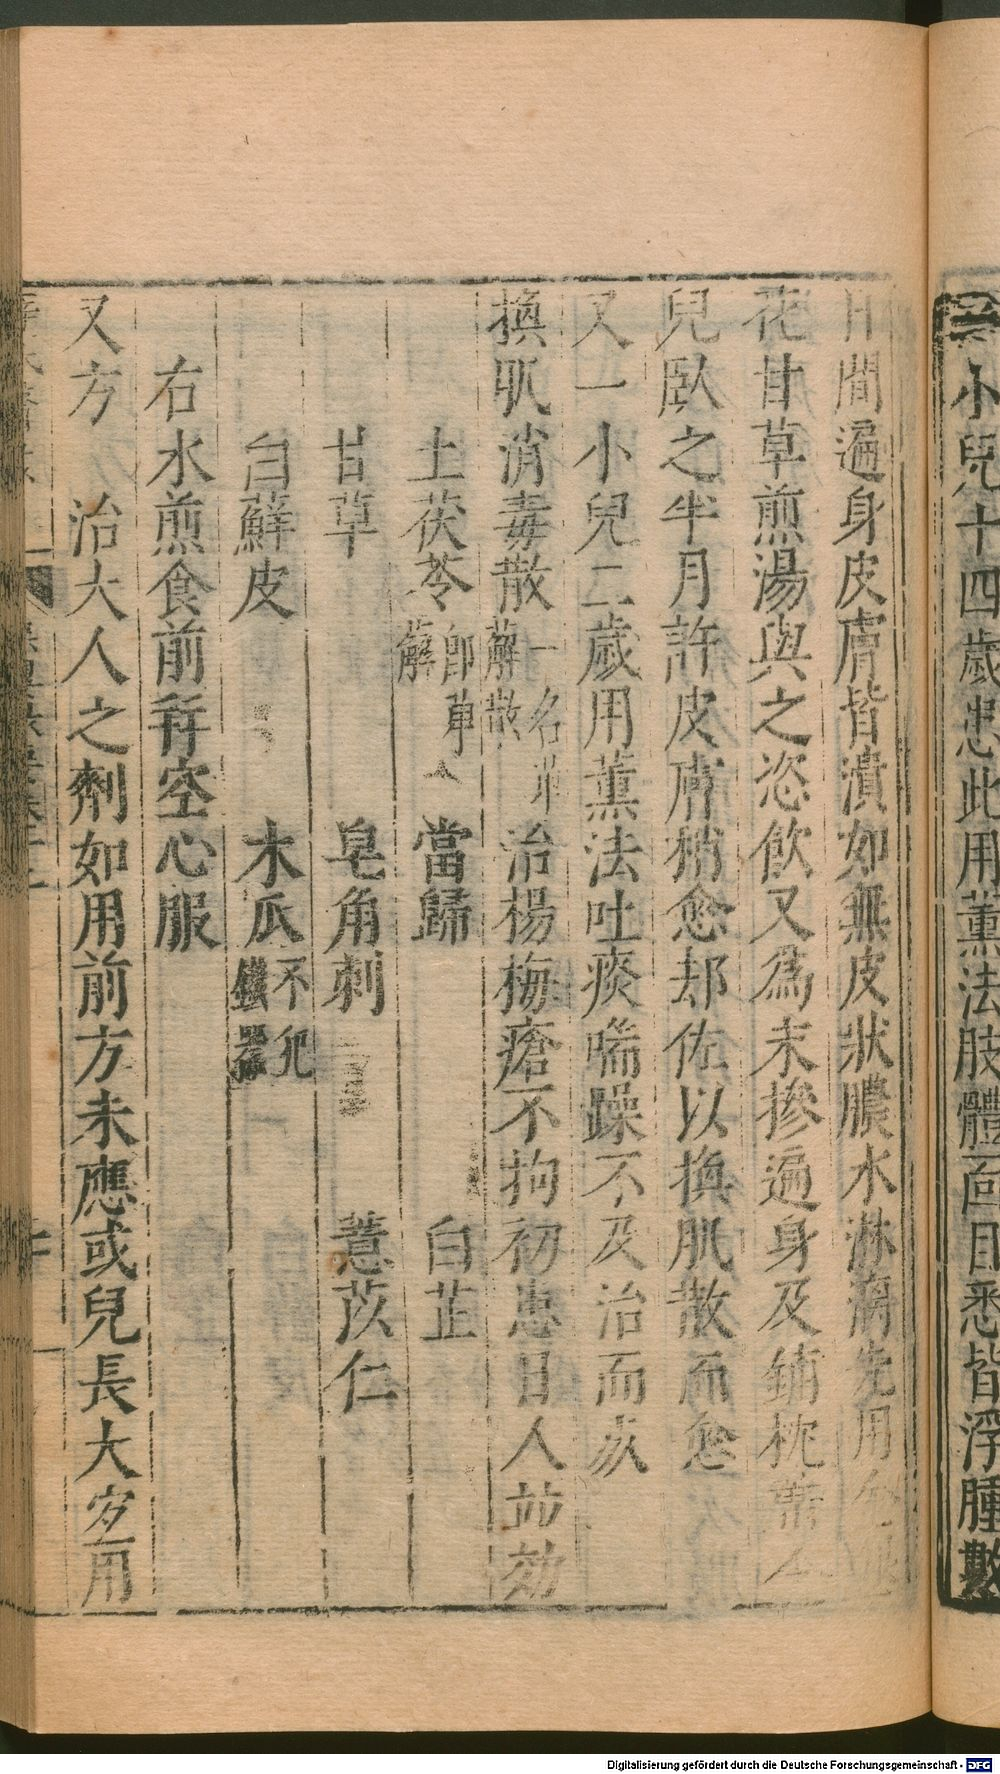 一小兒十四歲患此用薰法肢體面目悉皆浮腫數
日間遍身皮膚皆潰如無皮狀膿水淋漓先用金銀
花甘草煎湯與之恣飲又為末摻遍身及鋪枕席令
兒臥之半月許皮膚稍愈却佐以換肌散而愈
又一小兒二歲用薰法吐痰喘躁不及治而歿
換肌消毒散一名萆薢散 治楊梅瘡不拘初患日久並効
土茯苓即萆薢 當歸 白芷
甘草 皂角刺 薏苡仁
白蘚皮 木瓜不犯鐵器
右水煎食前并空心服
又方 治大人之劑如用前方未應或兒長大宜用
Digitalisierung gefördert durch die Deutsche Forschungsgemeinschaft - DFG